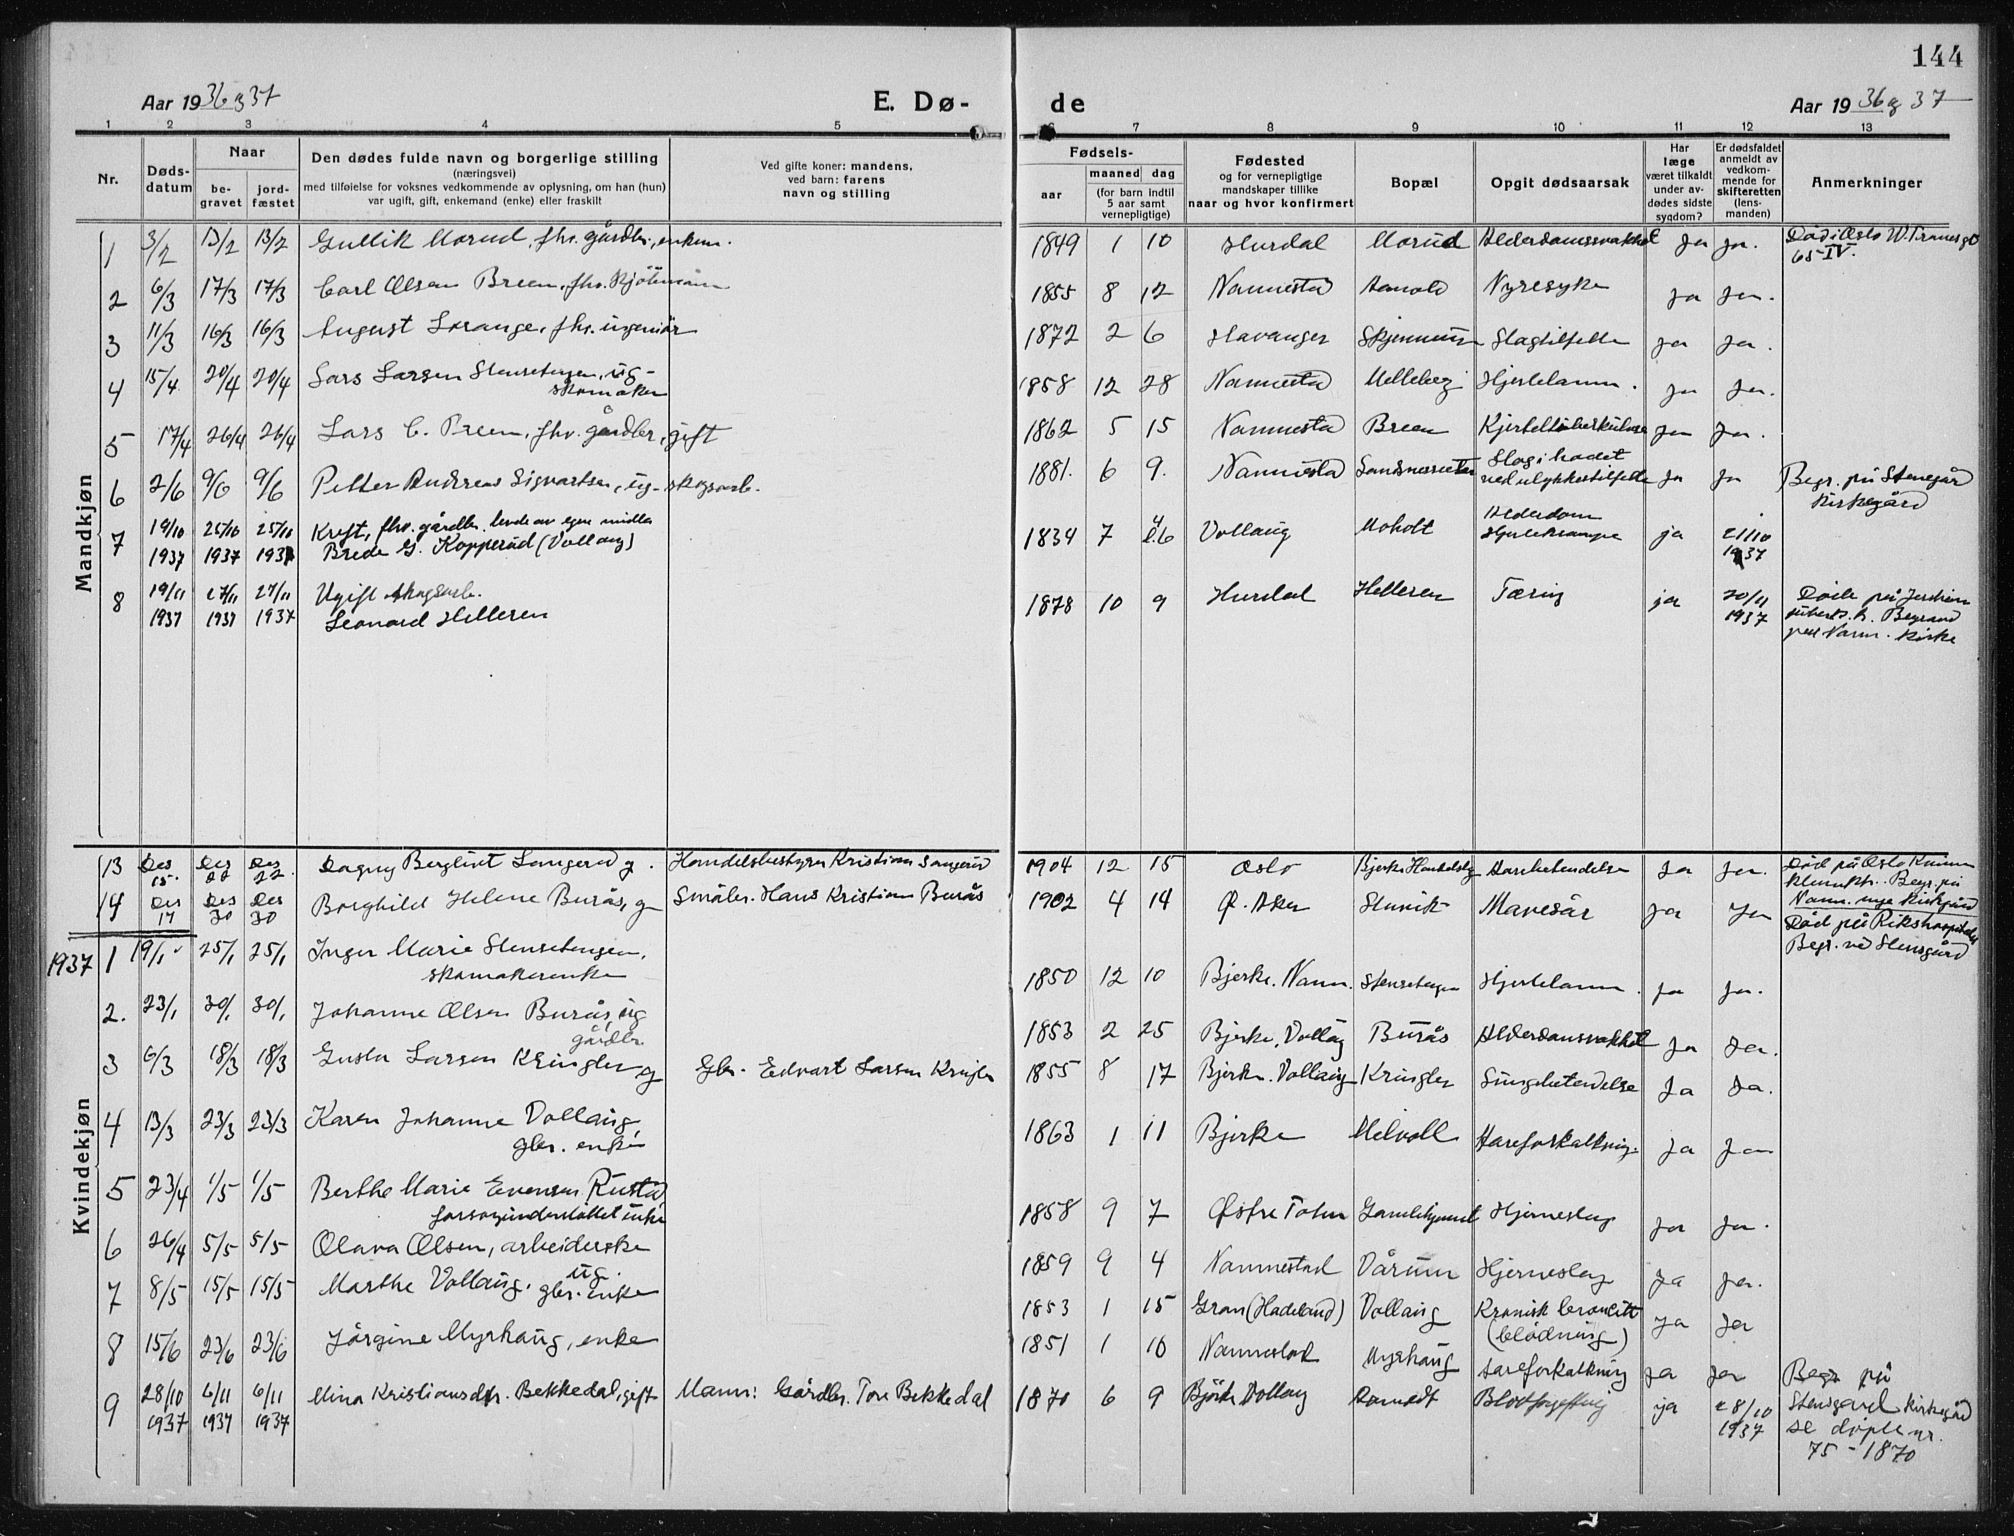 144
Aar 1936 og 37
E. Dø-
de
Aar 1936 og 37
1 2 3 4 5 6 7 8 9 10 11 12 13
Nr.
Døds-datum
Naar
be-gravet
jord-fæstet
Den dødes fulde navn og borgerlige stilling
(næringsvei)
med tilføielse for voksnes vedkommende av oplysning, om han (hun)
var ugift, gift, enkemand (enke) eller fraskilt
Ved gifte koner: mandens,
ved barn: farens
navn og stilling
Fødsels-
aar
maaned dag
(for barn indtil 5 aar samt vernepligtige)
Fødested
og for vernepligtige mandskaper tillike
naar og hvor konfirmert
Bopæl
Opgit dødsaarsak
Har læge været tilkaldt under av-dødes sidste sygdom?
Er dødsfaldet anmeldt av vedkom-mende for skifteretten (lens-manden)
Anmerkninger
Mandkjøn
1 3/2 13/2 13/2 Gullik Morud, fhv. gårdbr., enkem. 1849 1 10 Hurdal Morud Alderdomssvakhet Ja Ja. Död i Oslo W. Tranes gt
65 IV.
2 6/3 17/3 17/3 Carl Olsen Breen, fhv. Kjöbmann 1855 8 12 Nannestad Aamodt Nyresyke Ja Ja.
3 11/3 16/3 16/3 August Lorange, fhv. ingeniör 1872 2 6 Stavanger Skjennum Slagtilfelle Ja Ja.
4 15/4 20/4 20/4 Lars Larsen Stensetengen, ug-
skomaker 1858 12 28 Nannestad Melleberg Hjertelamm. Ja Ja.
5 17/4 26/4 26/4 Lars C. Breen, fhv. gårdbr., gift 1862 5 15 Nannestad Breen Kjerteltuberkulose Ja Ja.
6 2/6 9/6 9/6 Petter Andreas Sigvartsen, ug- skogsarb. 1881. 6 9. Nannestad Slag i hodet
ved ulykkestilfelle Ja Ja Begr. på Stensgård
Kirkegård
7 19/10 1937 25/10 1937 25/10 1937 fhv. gårdbr. levde av egne midler
Brede G. Kopperud (Vollaug) 1834 7 26 Vollaug Moholt Alderdom
Hjertekrampe ja 21/10
1937
8 19/11 1937 27/11 1937 27/11 1937 Ugift skogsarb.
Leonard Helleren 1878 10 9 Hurdal Helleren Tæring ja 20/11
1937 Døde på Jessheim
tuberk.h. Begravd
ved Nann. kirke
Kvindekjøn
13 Des 15. Des 22 Des 22. Dagny Berglint Sangerud g. Handelsbestyrer Kristian Sangerud 1904 12 15 Oslo Bjerke Handelslag Aarebetendelse Ja Ja. Död på Oslo Kommu
. Begr. på
Nann. nye Kirkegård
14 Des 17 Des 30 Des 30 Borghild Helene Burås, g Småbr. Hans Kristian Burås 1902 4 14 Ø. Aker Stenvik Mavesår Ja Ja Död på Rikshospitalet
Begr. ved Stensgård
1937 1 19/1 25/1 25/1 Inger Marie Stensetengen,
skomakerenke 1850 12 10 Bjerke. Nann. Stensetengen Hjertelamm. Ja Ja.
2. 23/1 30/1 30/1 Johanne Olsen Burås, ug
gårdbr. 1853 2 25 Bjerke, Vollaug Burås Alderdomssvakhet Ja Ja.
3 6/3 18/3 18/3 Gusta Larsen Kringler g Gbr. Edvart Larsen Kringler 1855 8 17 Bjerke. Vollaug Kringler Lungebetendelse Ja Ja.
4 13/3 23/3 23/3 Karen Johanne Vollaug,
gbr. enke 1863 1 11 Bjerke Melvoll Aareforkalkning. Ja Ja
5 23/4 1/5 1/5 Berthe Marie Evensen Rustad
forsorgsunderstöttet enke 1858 9 7 Østre Toten Gamlehjemmet Hjerneslag Ja Ja.
6 26/4 5/5 5/5 Olava Olsen, arbeiderske
ug. 1859 9 4 Nannestad Vårum Hjerneslag Ja Ja.
7 8/5 15/5 15/5 Marthe Vollaug. gbr. enke 1853 1 15 Gran (Hadeland) Vollaug Kronisk broncitt
(blödning) Ja Ja
8 15/6 23/6 23/6 Jörgine Myrhaug, enke 1851 1 10 Nannestad Myrhaug Aareforkalkning Ja Ja
9 28/10 1937 6/11 1937 6/11 1937 Mina Kristiansdtr. Bekkedal, gift Mann: Gårdbr. Tore Bekkedal 1870 6 9 Bjerke Vollaug Aamodt Blodforgiftning ja 28/10
1937 Begr på
Stensgård Kirkegård
se döpte nr.
75 - 1870